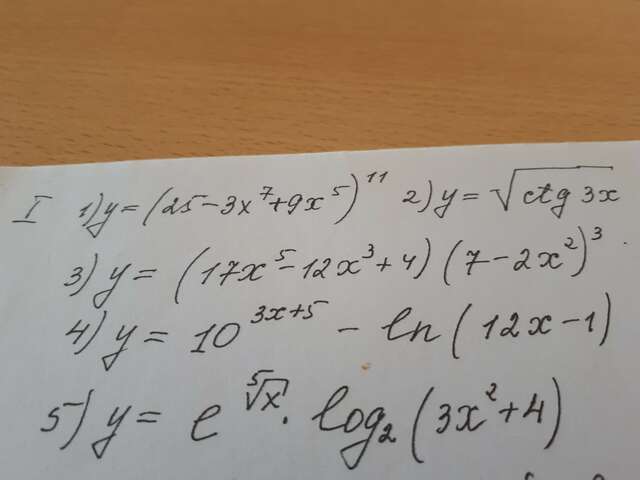 I 1) y = (25 - 3x⁷ + 9x⁵)¹¹ 2) y = √(ctg 3x)
3) y = (17x⁵ - 12x³ + 4) (7 - 2x²)³
4) y = 10^(3x+5) - ln(12x - 1)
5) y = e^(⁵√x) · log₂(3x² + 4)